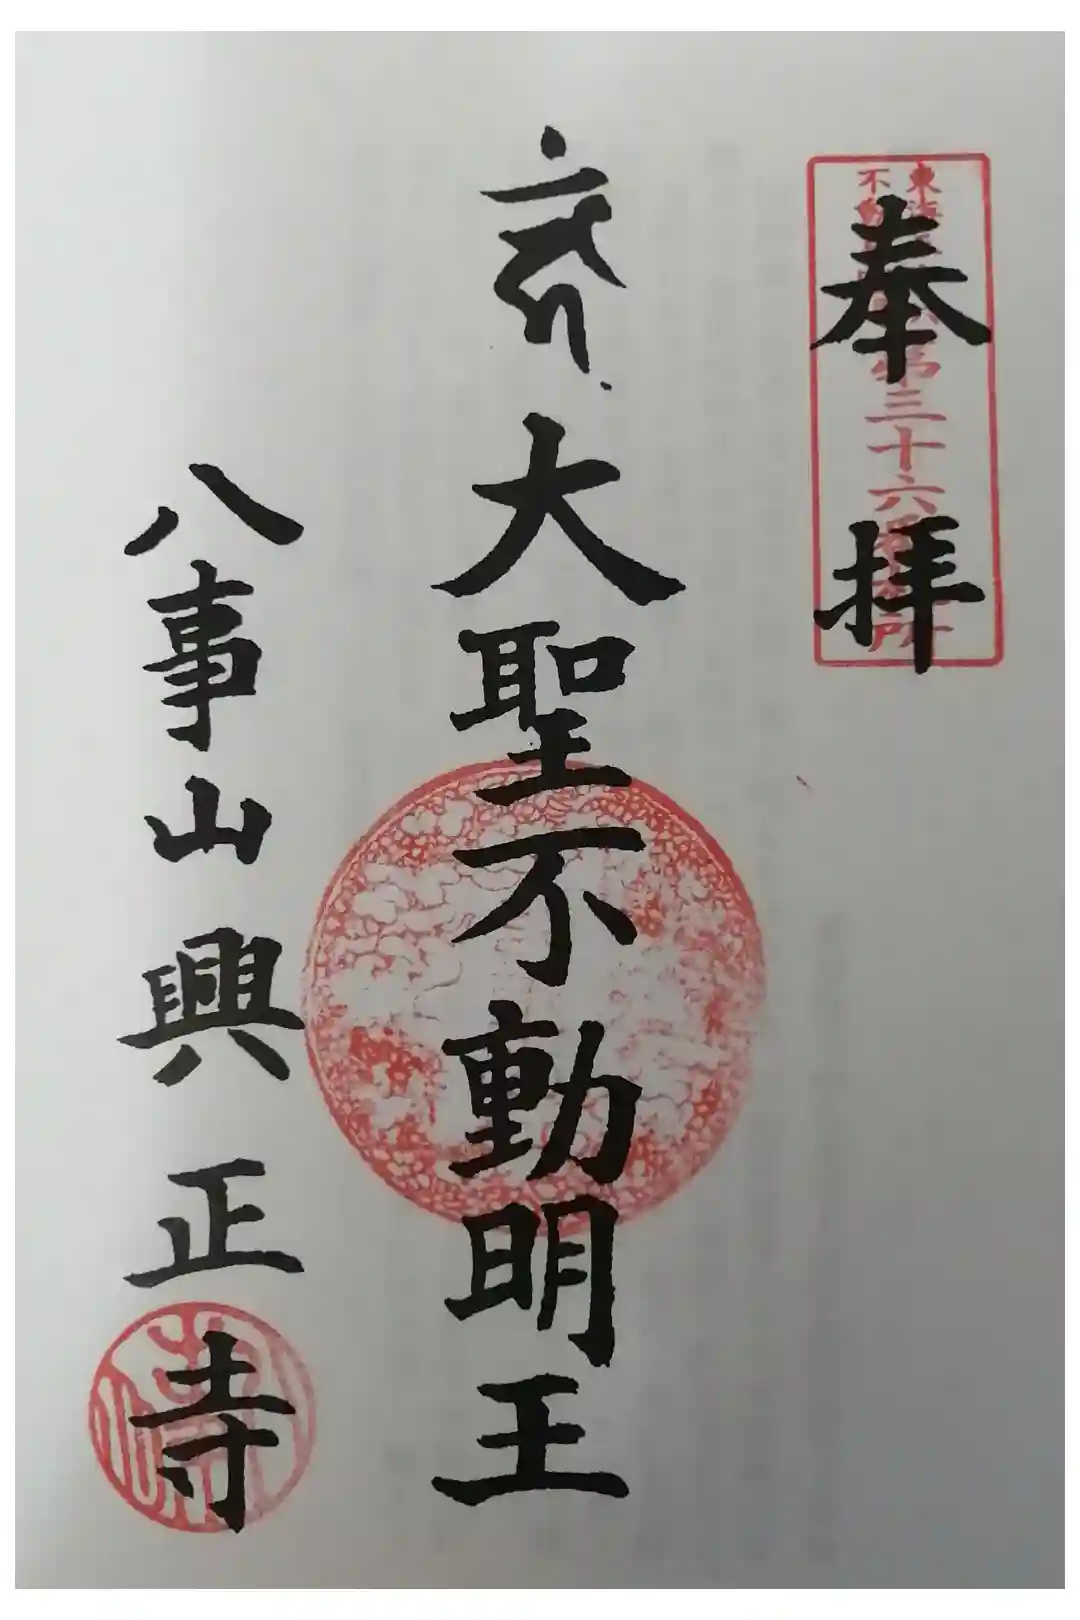 奉拝
東海
不動
第三十六番
所
大聖不動明王
八事山興正寺